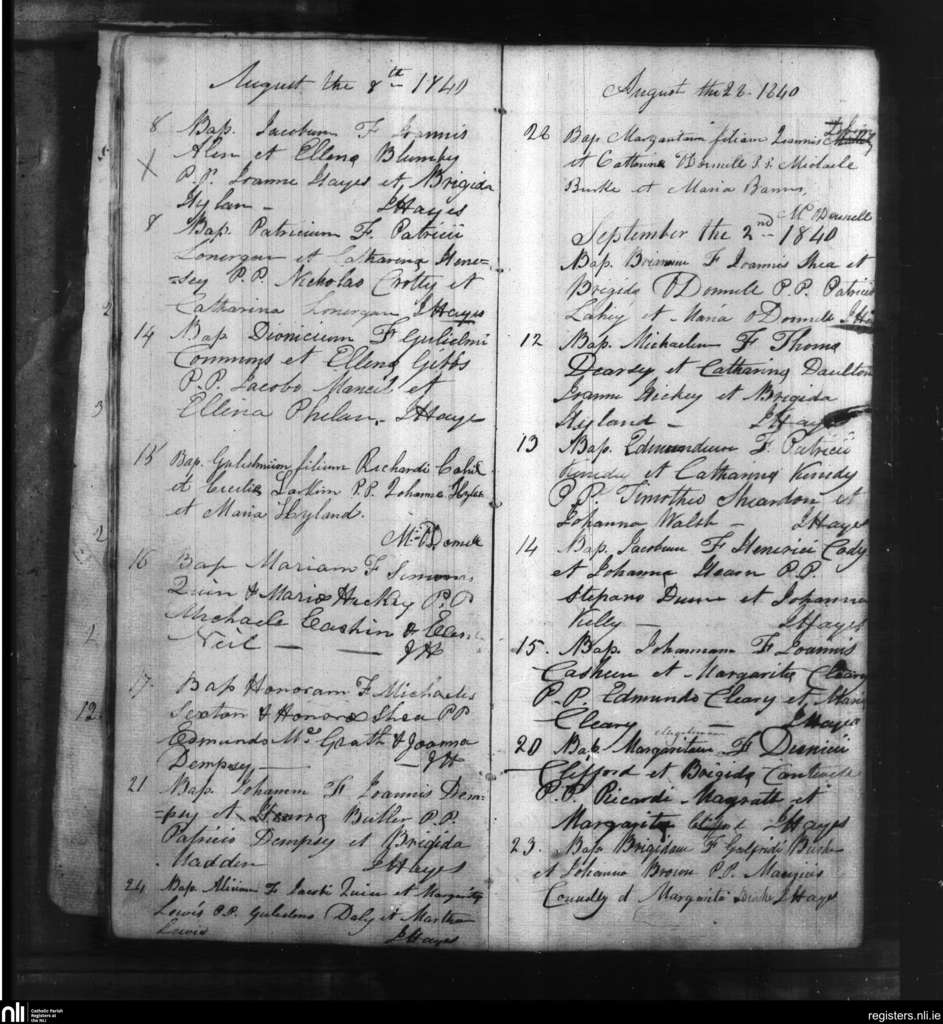 August the 8th 1840
8 Bap. Jacobum F Joannis
Alen et Ellena Blumfey
P.P. Joanne Hayes et Brigida
Hylan - JHayes
8 Bap. Patricium F. Patricii
Lonergan et Catharina Hene=
=sey P.P. Nickolas Crotty et
2 Catharina Lonergan JHayes
14 Bap Dionicium F Gulielmi
Commons et Ellena Gibbs
P.P. Jacobo Mancil et
3 Ellina Phelan. JHayes
15 Bap. Gulielmum filium Richardi Cahil
et Cecilia Larkim P.P. Johanne
et Maria Hyland.
2 Mc.Donnell
16 Bap Mariam F Simonis
Quin & Maria Hickey P.P
Michaele Cashin &
Neil — — JH
17. Bap Honoram F Michaelis
12 Sexton & Honora Shea PP
Edmundo McGrath & Joanna
Dempsey, — — JH
21 Bap. Johannem F Joannis Dem=
=psy et Butler P.P.
Patricio Dempsey et Brigida
Madden JHayes
24 Bap. F Jacobi Quin et Margarita
Lewis P.P. Gulielmo Daly et Martha
Lewis JHayes
August the 28. 1840
28 Bap Margaritam filiam Joannis
et Catherina O'Donnell S.S. Michaele
Burke et Maria
Mc Donnell
September the 2nd 1840
Bap. F Joannis Shea et
Brigida O Donnell P.P. Patricio
Lahey et Maria O Donnell
12 Bap. Michaelem F Thoma
Dearsy et Catharina Daulton
Joanne Hickey et Brigida
Hyland - JHayes
13 Bap. Edmundum F. Patricii
Kenedy et Catharina Kenedy
P.P. Timotheo Sheardon et
Johanna Walsh - JHayes
14 Bap. Jacobum F Henerici Cody
et Johanna Hearn P.P.
Stepano Dunn et Johanna
Kelly — JHayes
15. Bap. Johannam F Joannis
Casheen et Margarita Cleary
P.P. Edmundo Cleary et Maria
Cleary — JHayes
20 Bap. Margaritam F Dionicii
Clifford et Brigida
P.P. Ricardi Magrath et
Margarita JHayes
23. Bap Brigidam F Galfridi Burke
et Johanna Brown P.P. Marquis
Connolly et Margarita JHayes
nli
Catholic Parish
Registers at
the NLI
registers.nli.ie